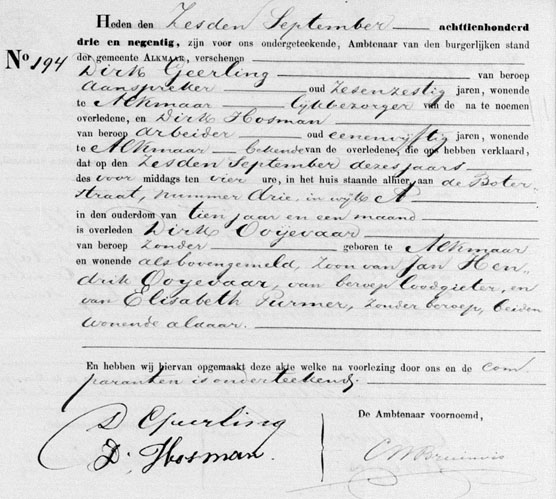 Heden den Zesden September achttienhonderd
drie en negentig, zijn voor ons ondergeteekende, Ambtenaar van den burgerlijken stand
der gemeente ALKMAAR, verschenen
No 194
Dirk Geerling van beroep
Aanspreker oud Zesenzestig jaren, wonende
te Alkmaar Lijkbezorger van de na te noemen
overledene, en Dirk Hosman
van beroep Arbeider oud eenenvijftig jaren, wonende
te Alkmaar bekende van de overledene, die ons hebben verklaard,
dat op den Zesden September dezes jaars
des voor middags ten vier ure, in het huis staande alhier, aan de Boter
straat, nummer drie, in wijk A
in den ouderdom van tien jaar en een maand
is overleden Dirk Ooijevaar
van beroep Zonder geboren te Alkmaar
en wonende als bovengemeld, Zoon van Jan Hen-
drik Ooyevaar, van beroep loodgieter, en
van Elisabeth Purmer, zonder beroep, beiden
wonende aldaar.
En hebben wij hiervan opgemaakt deze akte welke na voorlezing door ons en de com
paranten is onderteekend.
D Geerling
D. Hosman.
De Ambtenaar voornoemd,
C W Bruinvis